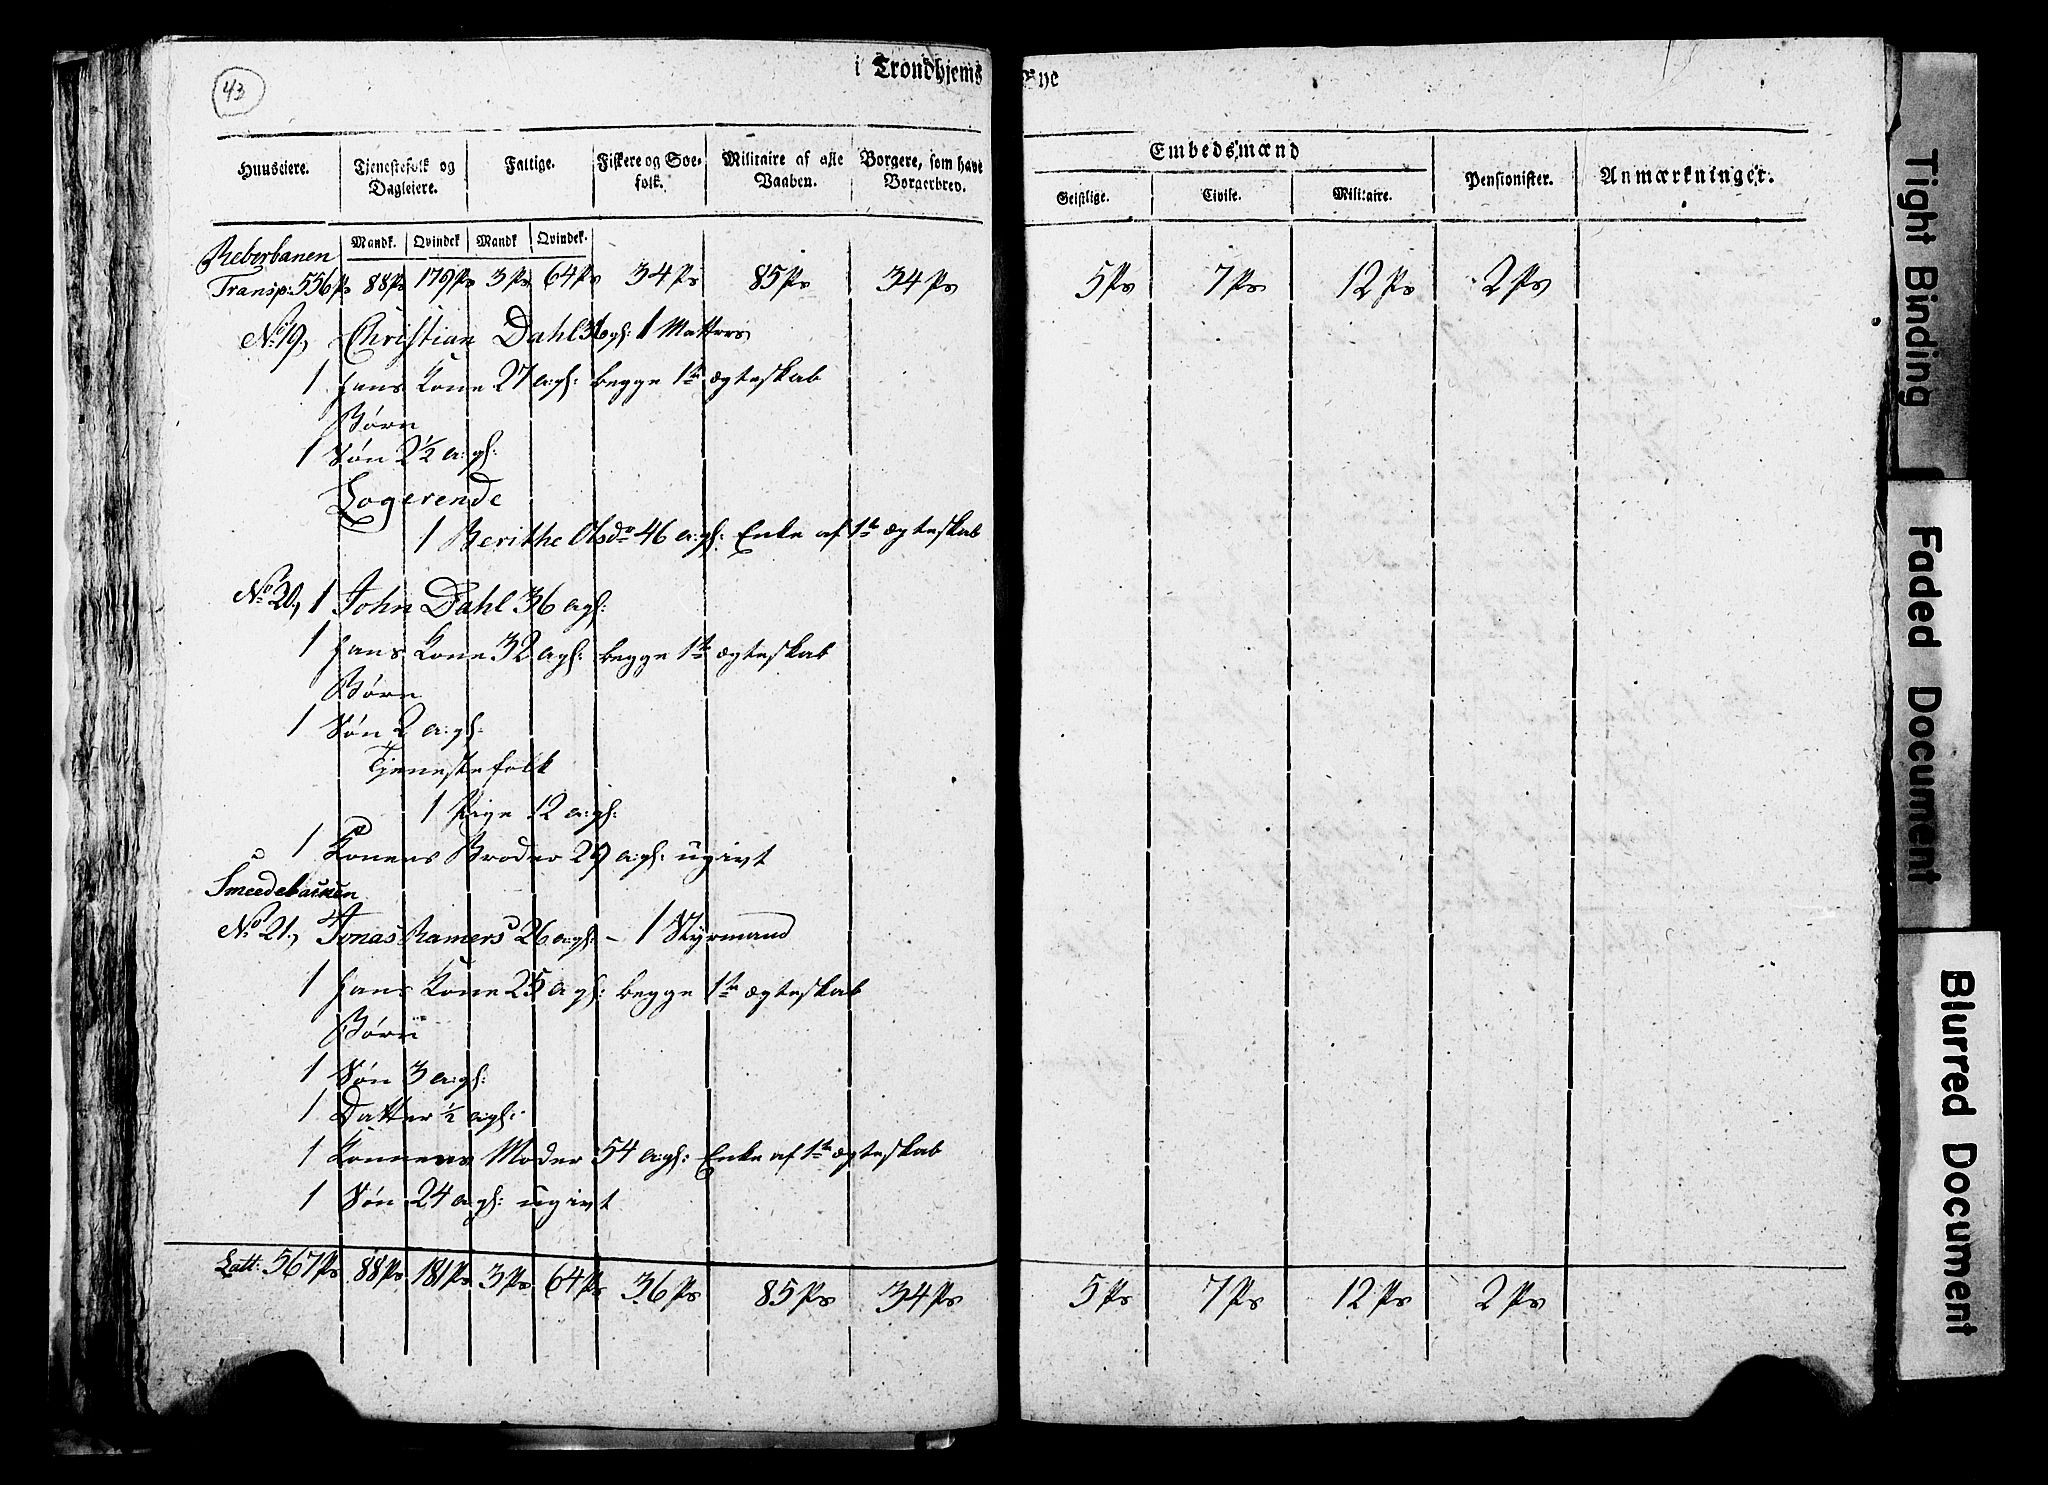 43
i Trondhjems Bye
Huuseiere. Tjenestefolk og Dagleiere. Fattige. Fiskere og Søe-folk. Militaire af alle Vaaben. Borgere, som have Borgerbrev. Embedsmænd Pensionister. Anmærkninger.
Geistlige. Civile. Militaire.
Mandk. Qvindek Mandk Qvindek.
Reberbanen
Transp: 556 Ps 88 Ps 179 Ps 3 Ps 64 Ps 34 Ps 85 Ps 34 Ps 5 Ps 7 Ps 12 Ps 2 Ps
No 19, Christian Dahl 36 agl: 1 Mattros
1 hans Kone 27 a:gl: begge 1te ægteskab
Børn
1 Søn 2½ a:gl:
Logerende
1 Berithe Olsdr 46 a:gl: Enke af 1te ægteskab
No 20, 1 John Dahl 36 agl:
1 hans Kone 32 agl: begge 1te ægteskab
Børn
1 Søn 2 a:gl:
Tjenestefolk
1 Pige 12 a:gl:
1 Konens Broder 29 a:gl: ugivt
Smeedebakken
No 21, Jonas Ramers 26 a:gl: – 1 Styrmand
1 hans Kone 25 agl: begge 1te ægteskab
Børn
1 Søn 3 a:gl:
1 Datter ½ a:gl:
1 Konnens Moder 54 a:gl: Enke af 1te ægteskab
1 Søn 24 a:gl: ugivt
Latt: 567 Ps 88 Ps 181 Ps 3 Ps 64 Ps 36 Ps 85 Ps 34 Ps 5 Ps 7 Ps 12 Ps 2 Ps
Tight Binding
Faded Document
Blurred Document